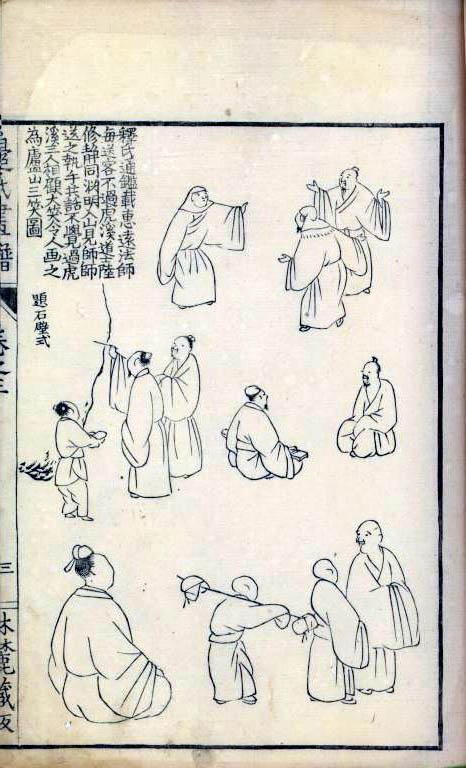 釋氏通鑑載惠遠法師
每送客不過虎溪道士陸
修靜同淵明入山見師師
送之執手共話不覺過虎
溪三人相顧大笑令人画之
為廬山三笑圖
題石壁式
氏畫譜
卷之三
三
藏板